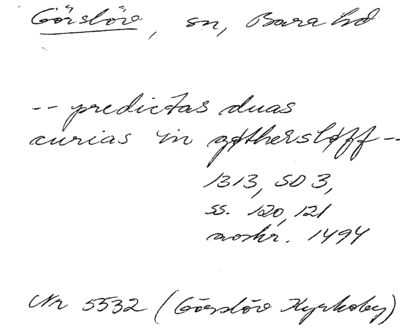 Görslöv, sn, Bara hd
-- predictas duas
curias in gøthersløff --
1313, SD 3,
ss. 120, 121
avskr. 1494
Nr 5532 (Görslöv Kyrkoby)